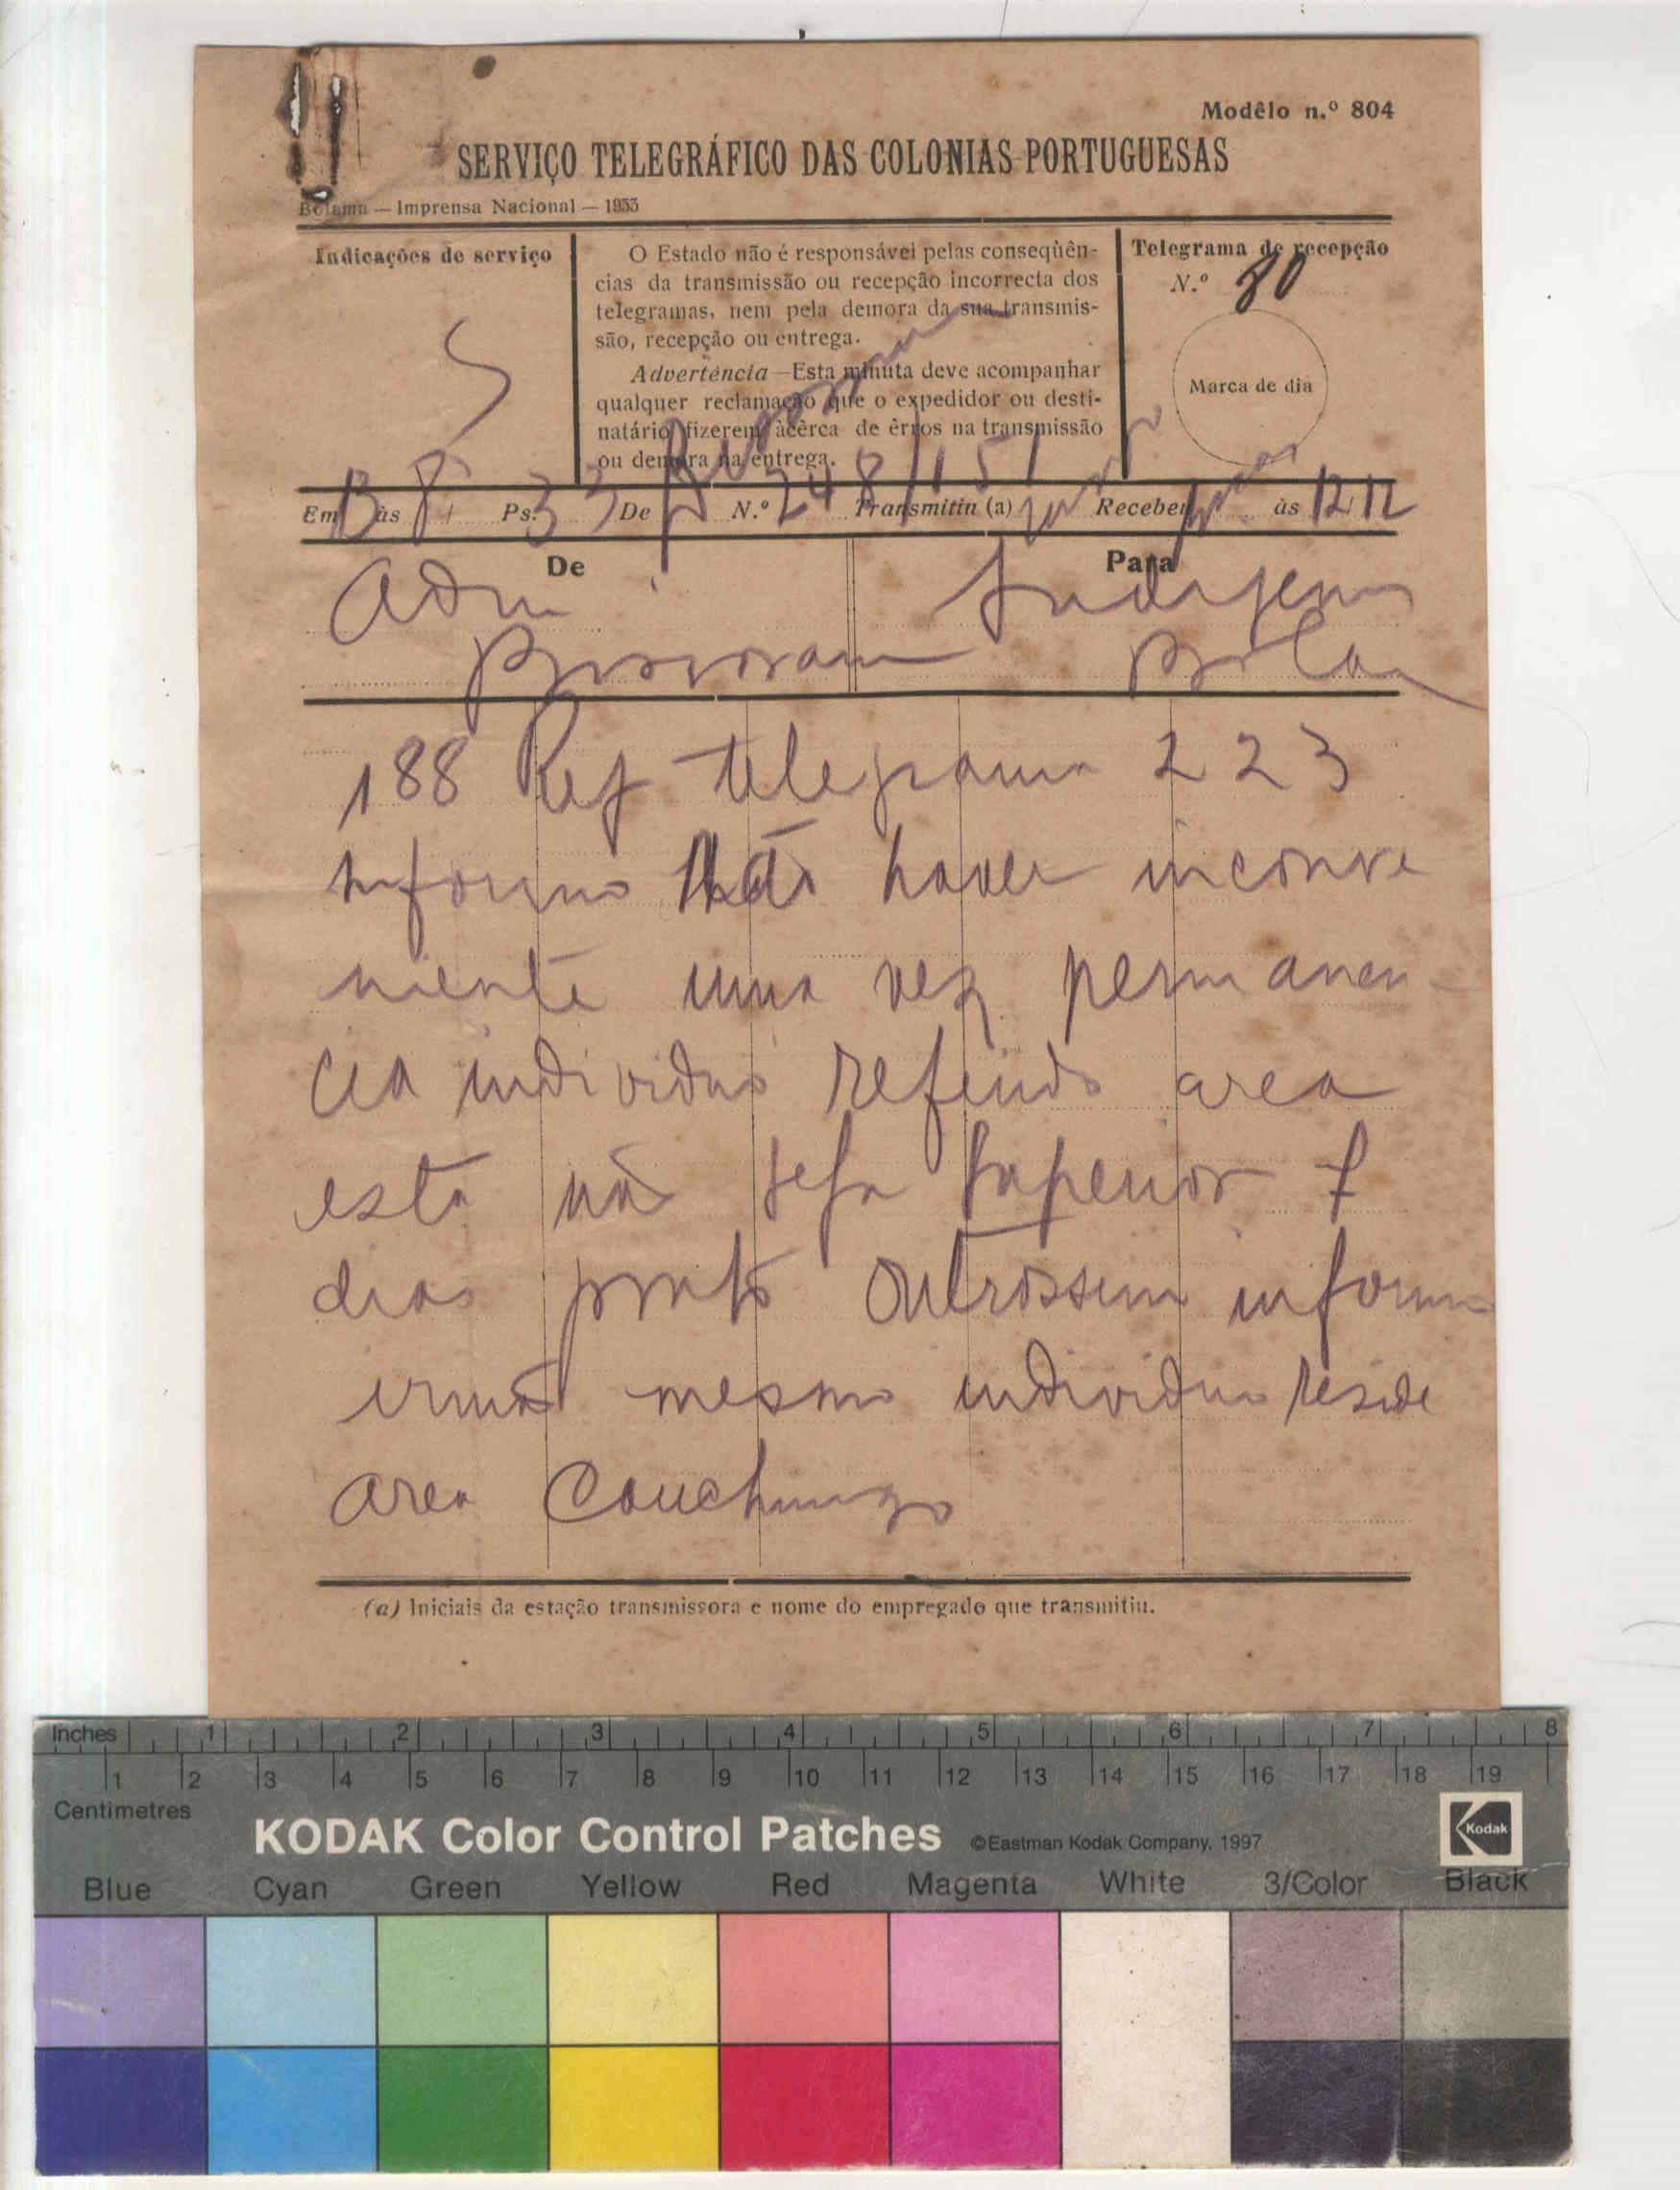 Modêlo n.º 804
SERVIÇO TELEGRÁFICO DAS COLONIAS PORTUGUESAS
Bolama — Imprensa Nacional — 1933
Indicações de serviço
O Estado não é responsável pelas conseqùên-
cias da transmissão ou recepção incorrecta dos
telegramas, nem pela demora da sua transmis-
são, recepção ou entrega.
Advertência—Esta minuta deve acompanhar
qualquer reclamação que o expedidor ou desti-
natário fizerem àcêrca de êrros na transmissão
ou demora na entrega.
Telegrama de recepção
N.º 80
Marca de dia
Em 13 às 8 Ps. 33 De N.º 248/15/ Transmitiu (a) Recebeu às 12 12
De
Para
Adm
Indigenas
Bissoram
Bolam
188 Ref telegrama 223
informo não haver inconve
niente uma vez permanen-
cia individuo referido area
esta não seja superior 7
dias ponto outrossim informo
irmão mesmo individuo reside
area Canchungo
(a) Iniciais da estação transmissora e nome do empregado que transmitiu.
Inches 1 2 3 4 5 6 7 8
1 2 3 4 5 6 7 8 9 10 11 12 13 14 15 16 17 18 19
Centimetres
KODAK Color Control Patches ©Eastman Kodak Company, 1997 Kodak
Blue Cyan Green Yellow Red Magenta White 3/Color Black